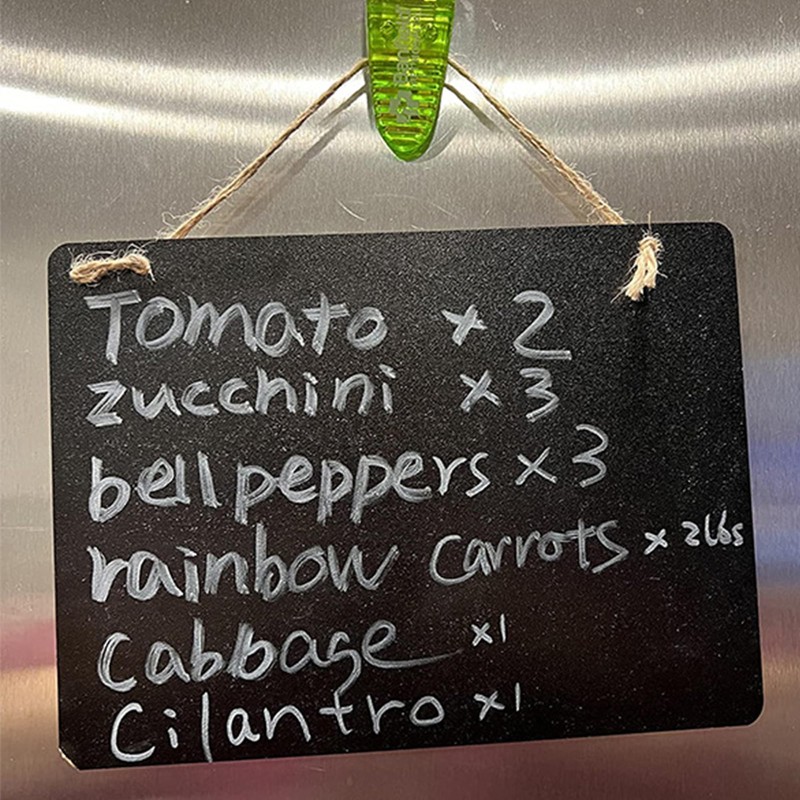 Tomato x 2
zucchini x 3
bell peppers x 3
rainbow carrots x 2lbs
Cabbage x1
Cilantro x1